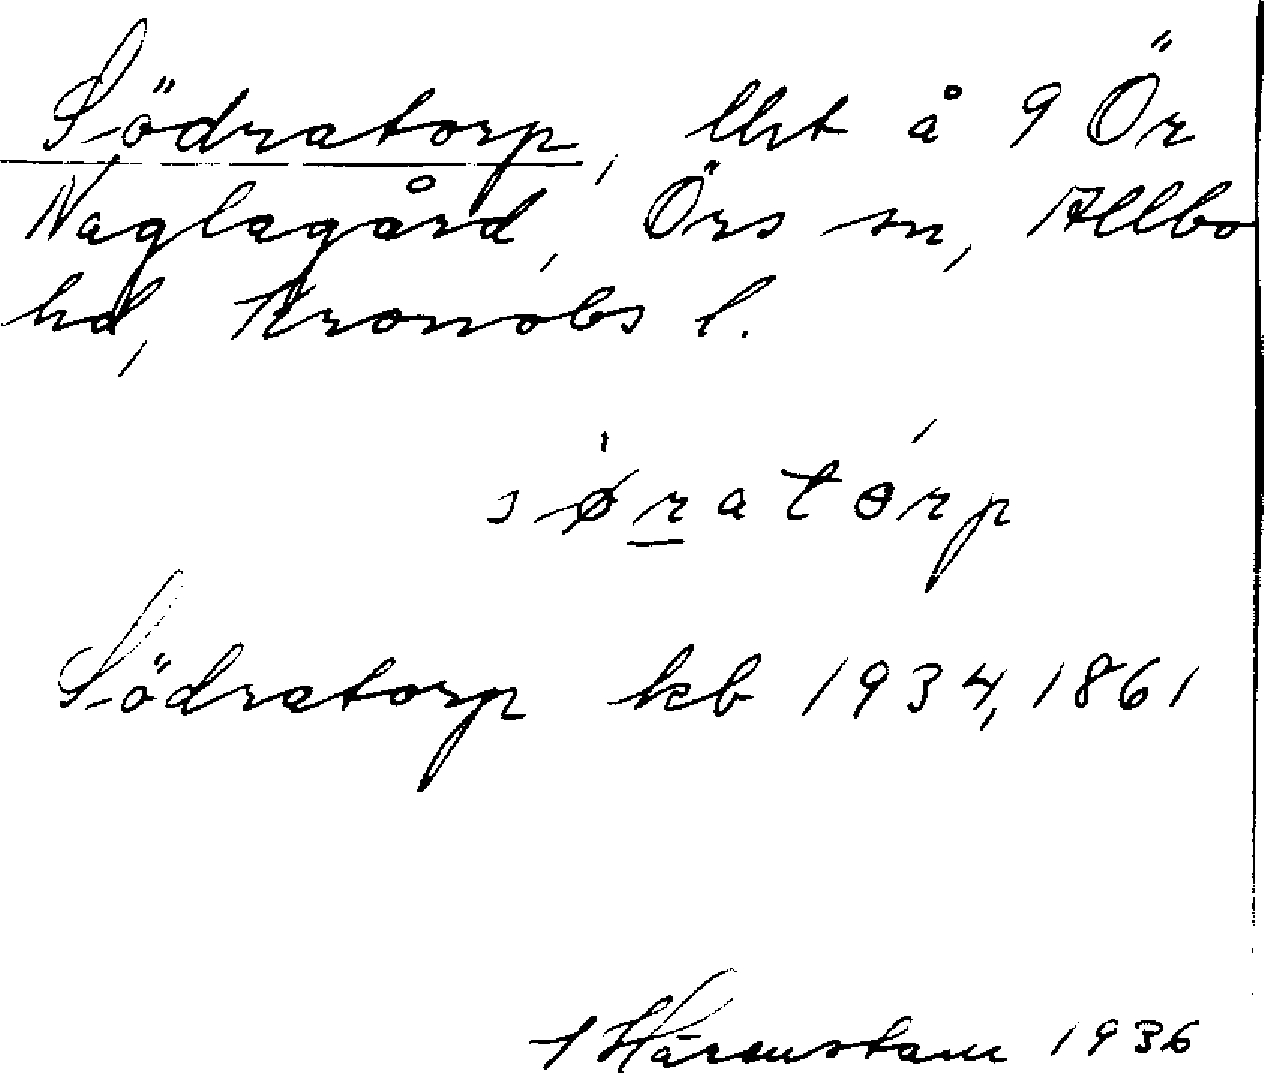 Södratorp, lht å 9 Ör
Naglagård, Örs sn, Allbo
hd, Kronobs l.
søratórp
Södratorp kb 1934, 1861
1936